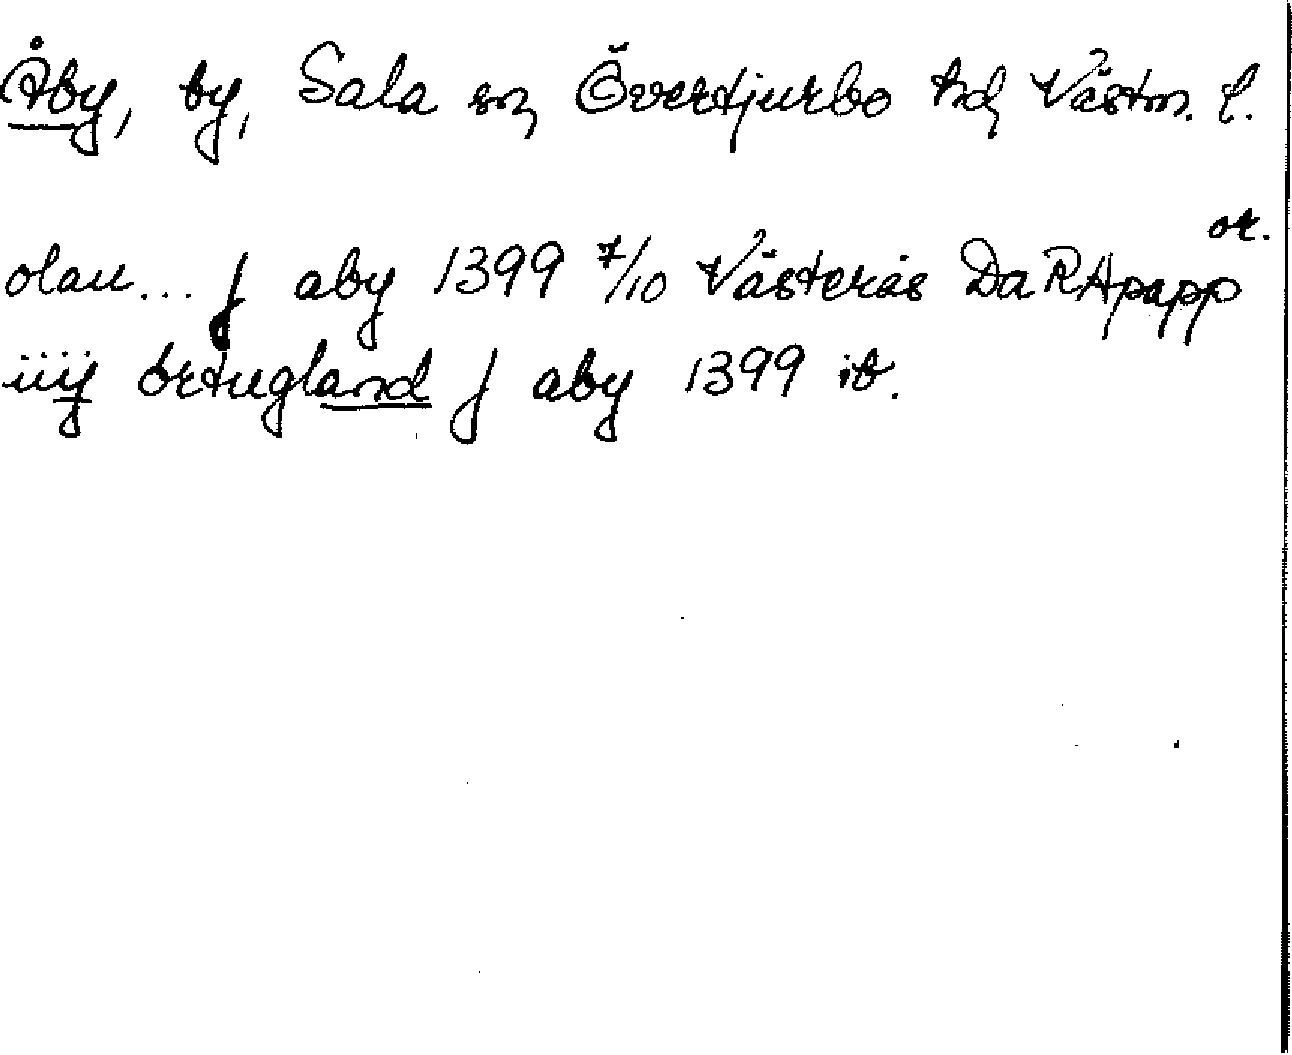 Åby, by, Sala sn, Övertjurbo hd, Västm. l.
or.
olau... j aby 1399 7/10 Västerås Da RApapp
iiij örtugland j aby 1399 ib.